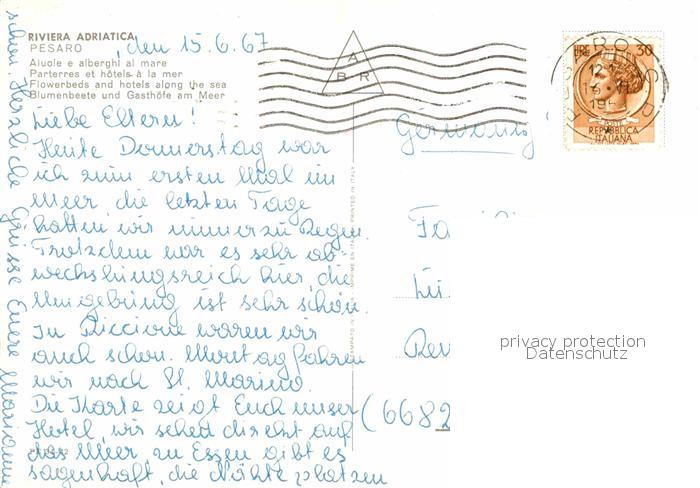 RIVIERA ADRIATICA
PESARO
Aiuole e alberghi al mare
Parterres et hôtels à la mer
Flowerbeds and hotels along the sea
Blumenbeete und Gasthöfe am Meer
, den 15.6.67
Liebe Eltern!
Heute Donnerstag war
ich zum ersten Mal im
Meer, die letzten Tage
hatten wir immerzu Regen.
Trotzdem war es sehr ab-
wechslungsreich hier, die
Umgebung ist sehr schön.
In Riccione waren wir
auch schon. Montag fahren
wir nach St. Marino.
Die Karte zeigt Euch unser
Hotel, wir sehen direkt auf
das Meer, zu Essen gibt es
sagenhaft, die Nähte platzen
schon. Herzliche Grüsse Euere Marianne
ABR
LIRE 30
REPUBBLICA
ITALIANA
Germany
Fa
Rev
(6682
privacy protection
Datenschutz
PRINTED IN ITALY